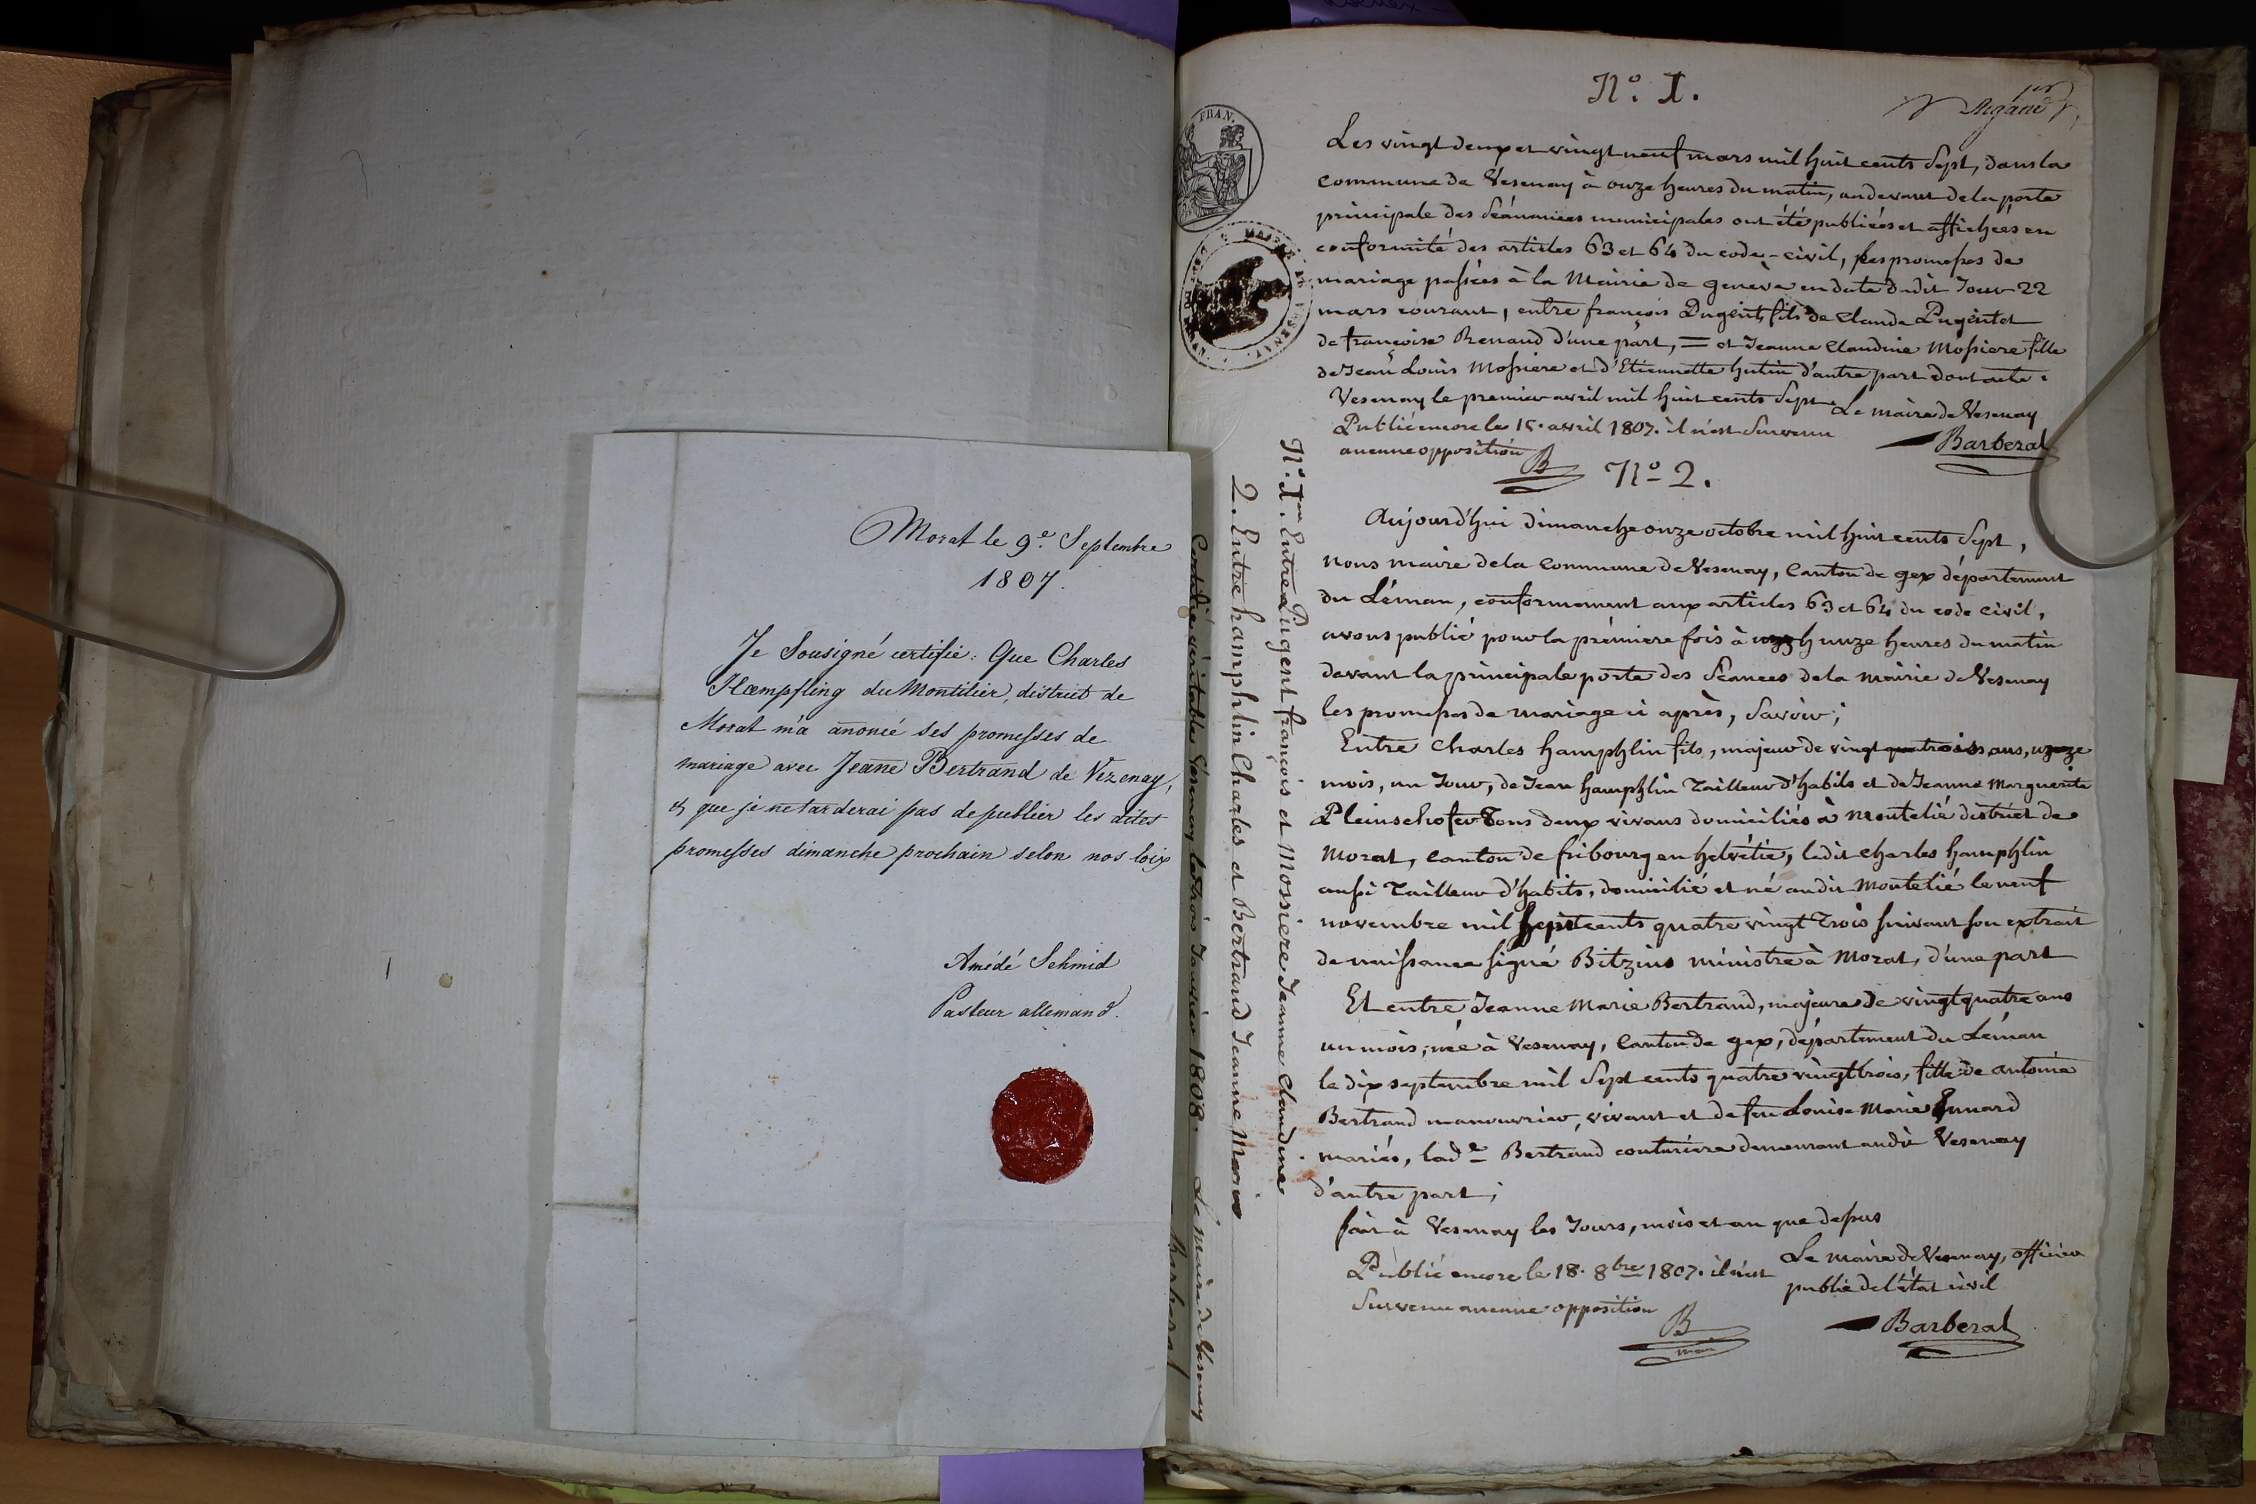 Morat le 9.e Septembre
1807.
Je Sousigné certifie: Que Charles
Hæmpfling du Montilier, district de
Morat m'a anoncé ses promesses de
mariage avec Jeanne Bertrand de Vezenay,
& que je ne tarderai pas de publier les dites
promesses dimanche prochain selon nos loix
Amédé Schmid
Pasteur allemand.
Certifié véritable Vesenay le trois Janvier 1808. Le maire de Vesenay
Barberat
2. Entre hamphlin Charles et Bertrand Jeanne Marie
N.o 1. Entre Pugent françois et Mossiere Jeanne Claudine
N.o 1.
FRAN.
Les vingt deux et vingt neuf mars mil huit cents Sept, dans la
commune de Vesenay à onze heures du matin, au devant de la porte
principale des Séanances municipales ont été publiées et affichées en
conformité des articles 63 et 64 du code-civil, les promesses de
mariage passées à la Mairie de genève en date dudit Jour 22
mars courant, entre françois Pugent, fils de Claude Pugent et
de françoise Renaud d'une part, = et Jeanne Claudine Mossiere fille
de Jean Louis Mossiere et d'Etiennette hutin d'autre part dont acte.
Vesenay le premier avril mil huit cents Sept. Le maire de Vesenay
Publié encore le 15. avril 1807. il n'est Survenu
aucune opposition B
Barberat
N.o 2.
Aujourd'hui dimanche onze octobre mil huit cents Sept,
nous maire de la Commune de Vesenay, Canton de gex département
du Léman, conformement aux articles 63 et 64 du code civil,
avons publié pour la prémiere fois à hunze heures du matin
devant la principale porte des Séances de la mairie de Vesenay
les promesses de mariage ci après, Savoir;
Entre Charles hamphlin fils, majeur de vingt trois ans, unze
mois, un Jour, de Jean hamphlin Tailleur d'habits et de Jeanne Marguerite
Pleinschofer Tous deux vivans domiciliés à Montelié district de
Morat, Canton de fribourg en helvétie, ledit Charles hamphlin
aussi Tailleur d'habits, domicilié et né audit Montelié le neuf
novembre mil Sept cents quatre vingt Trois suivant son extrait
de naissance signé Bitzius ministre à Morat, d'une part
Et entre Jeanne Marie Bertrand, majeure de vingt quatre ans
un mois, née à Vesenay, Canton de gex, département du Léman
le dix septembre mil Sept cents quatre vingt trois, fille de antoine
Bertrand manouvrier, vivant et de feu Louise Marie
mariés, lad.e Bertrand couturière demeurant audit Vesenay
d'autre part;
fait à Vesenay les Jours, mois et an que dessus
Publié encore le 18. 8bre 1807. il n'est
Survenu aucune opposition B
Le maire de Vesenay, officier
public de l'état civil
Barberat